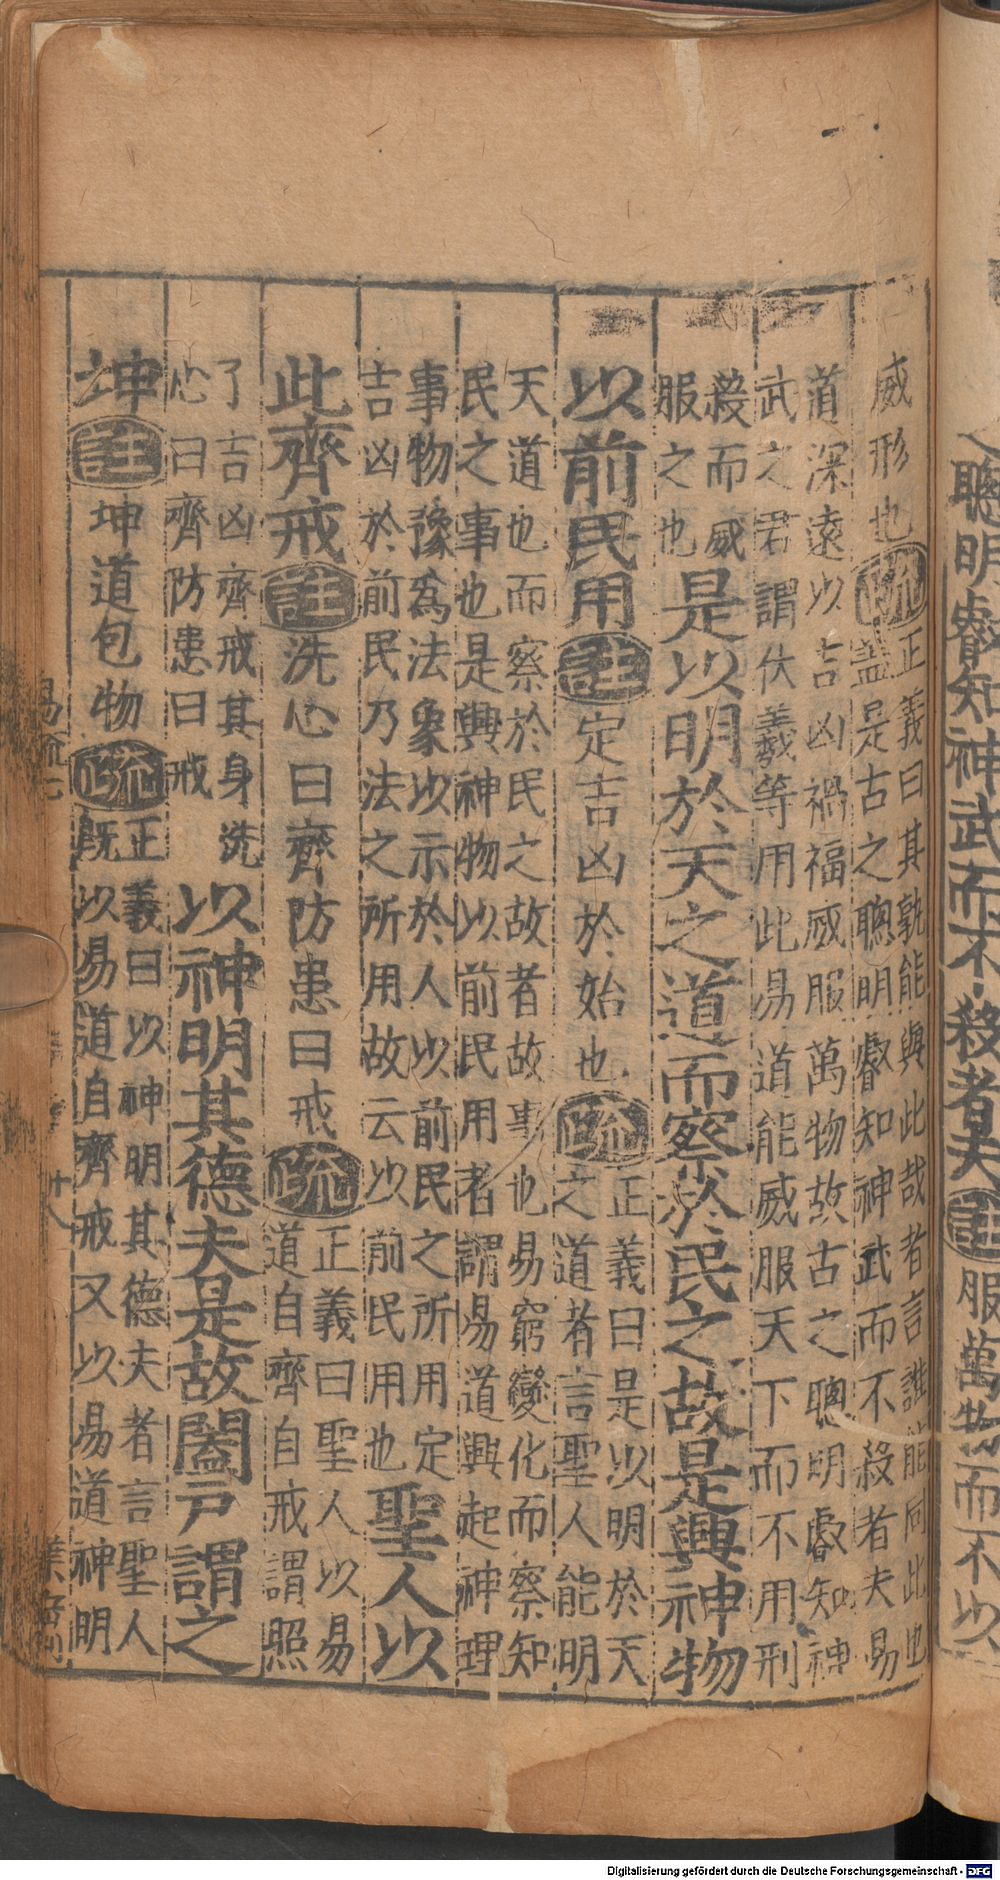 聰明睿知神武而不殺者夫註服萬物而不以
威形也疏正義曰其孰能與此哉者言誰能同此也
蓋是古之聰明叡知神武而不殺者夫易
道深遠以吉凶禍福威服萬物故古之聰明叡知神
武之君謂伏羲等用此易道能威服天下而不用刑
殺而威
服之也是以明於天之道而察於民之故是興神物
以前民用註定吉凶於始也疏正義曰是以明於天
之道者言聖人能明
天道也而察於民之故者故事也易窮變化而察知
民之事也是興神物以前民用者謂易道興起神理
事物豫為法象以示於人以前民之所用定
吉凶於前民乃法之所用故云以前民用也聖人以
此齊戒註洗心曰齊防患曰戒疏正義曰聖人以易
道自齊自戒謂照
了吉凶齊戒其身洗
心曰齊防患曰戒以神明其德夫是故闔戸謂之
坤註坤道包物疏正義曰以神明其德夫者言聖人
既以易道自齊戒又以易道神明
易
十八
Digitalisierung gefördert durch die Deutsche Forschungsgemeinschaft - DFG